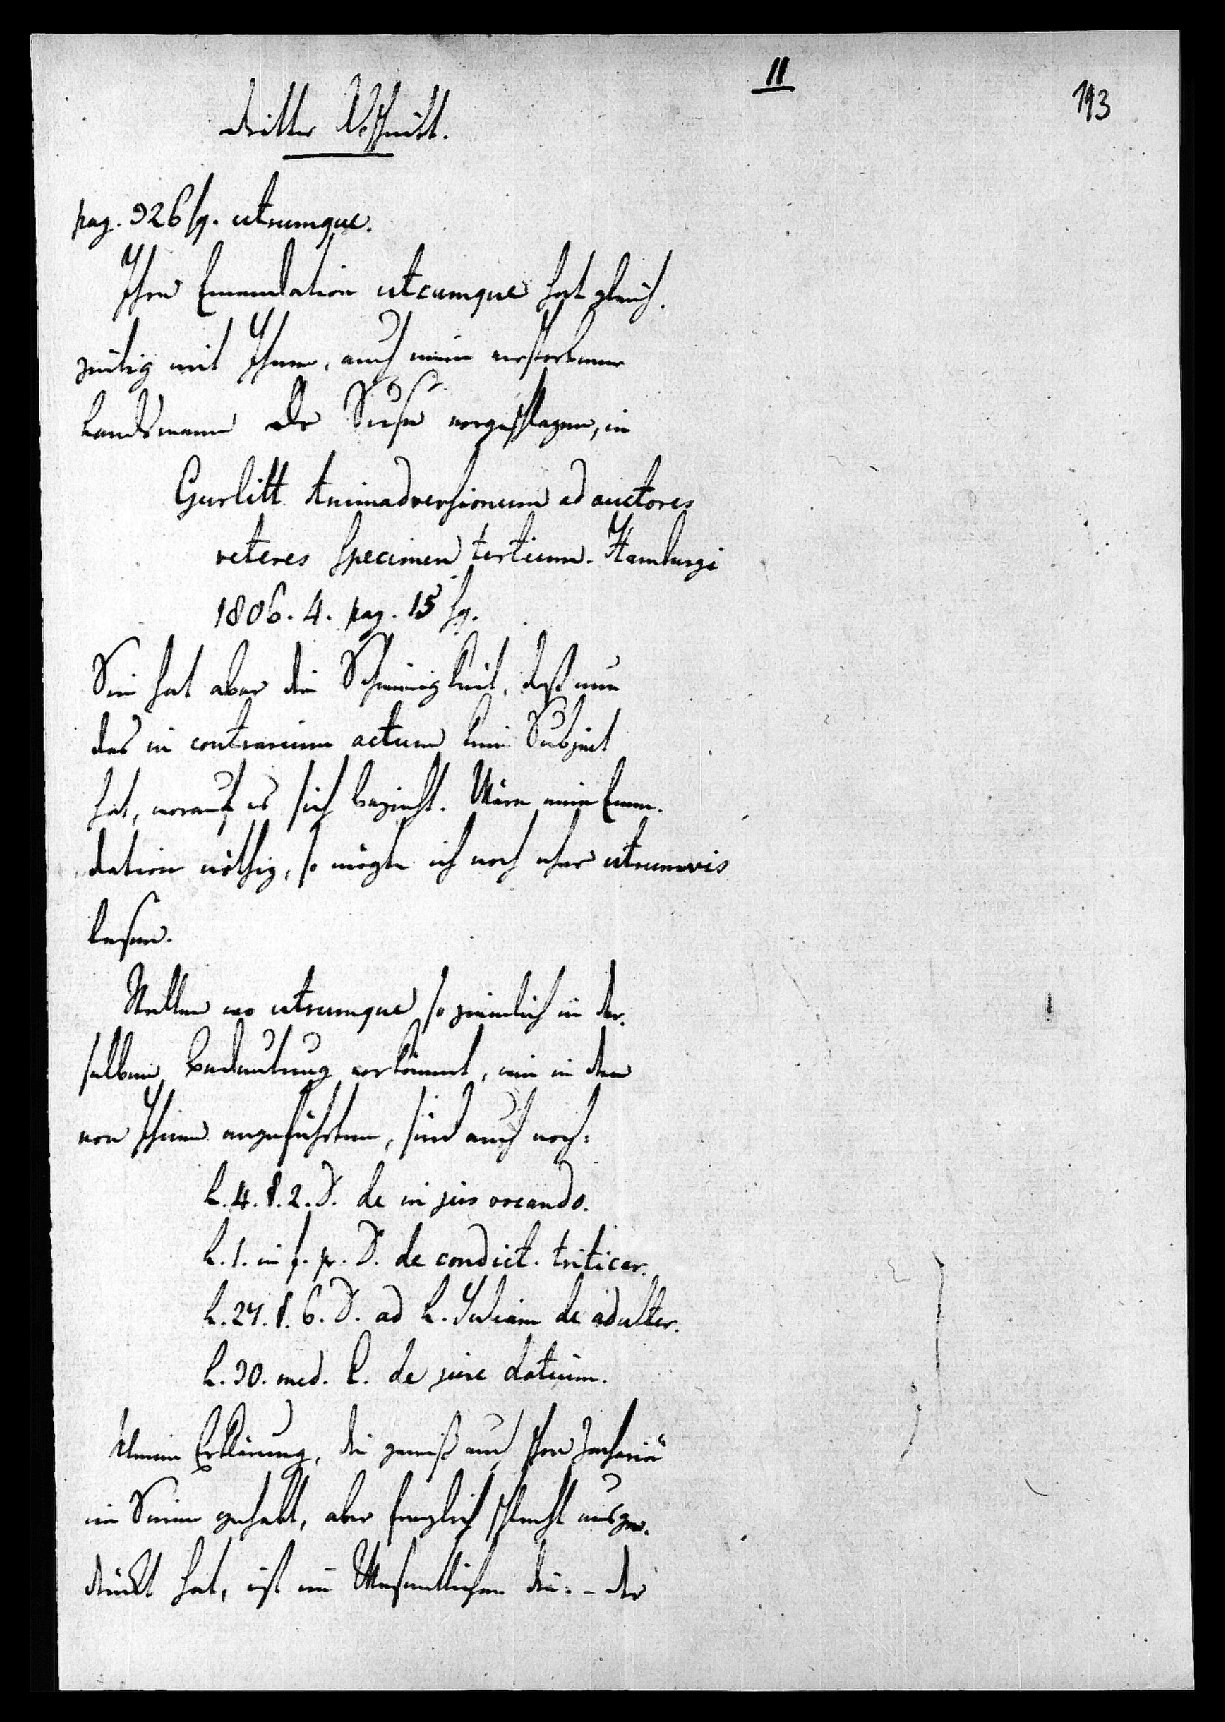 11
193
Dritter Abschnitt.
pag. 926 sq. utrumque.
Ihre Emendation utcumque hat gleich-
zeitig mit Ihnen, auch mein verstorbener
Landsmann Dr Suse vorgeschlagen, in
Gurlitt Animadversionum ad auctores
veteres specimen tertium. Hamburgi
1806. 4. pag. 15 sq.
Sie hat aber die Schwierigkeit, daß nun
das in contrarium actum kein Subject
hat, worauf es sich bezieht. Wäre eine Emen-
dation nöthig, so mögte ich noch eher utrumvis
lesen.
Stellen wo utrumque so ziemlich in der-
selben Bedeutung vorkömmt, wie in den
von Ihnen angeführten, sind auch noch:
L. 4. §. 2. D. de in jus vocando.
L. 1. in f. pr. D. de condict. triticar.
L. 27. §. 6. D. ad L. Juliam de adulter.
L. 30. med. C. de jure dotium.
Meine Erklärung, die gewiß auch schon Zachariä
im Sinne gehabt, aber freylich schlecht ausge-
drückt hat, ist im Wesentlichen die: – der